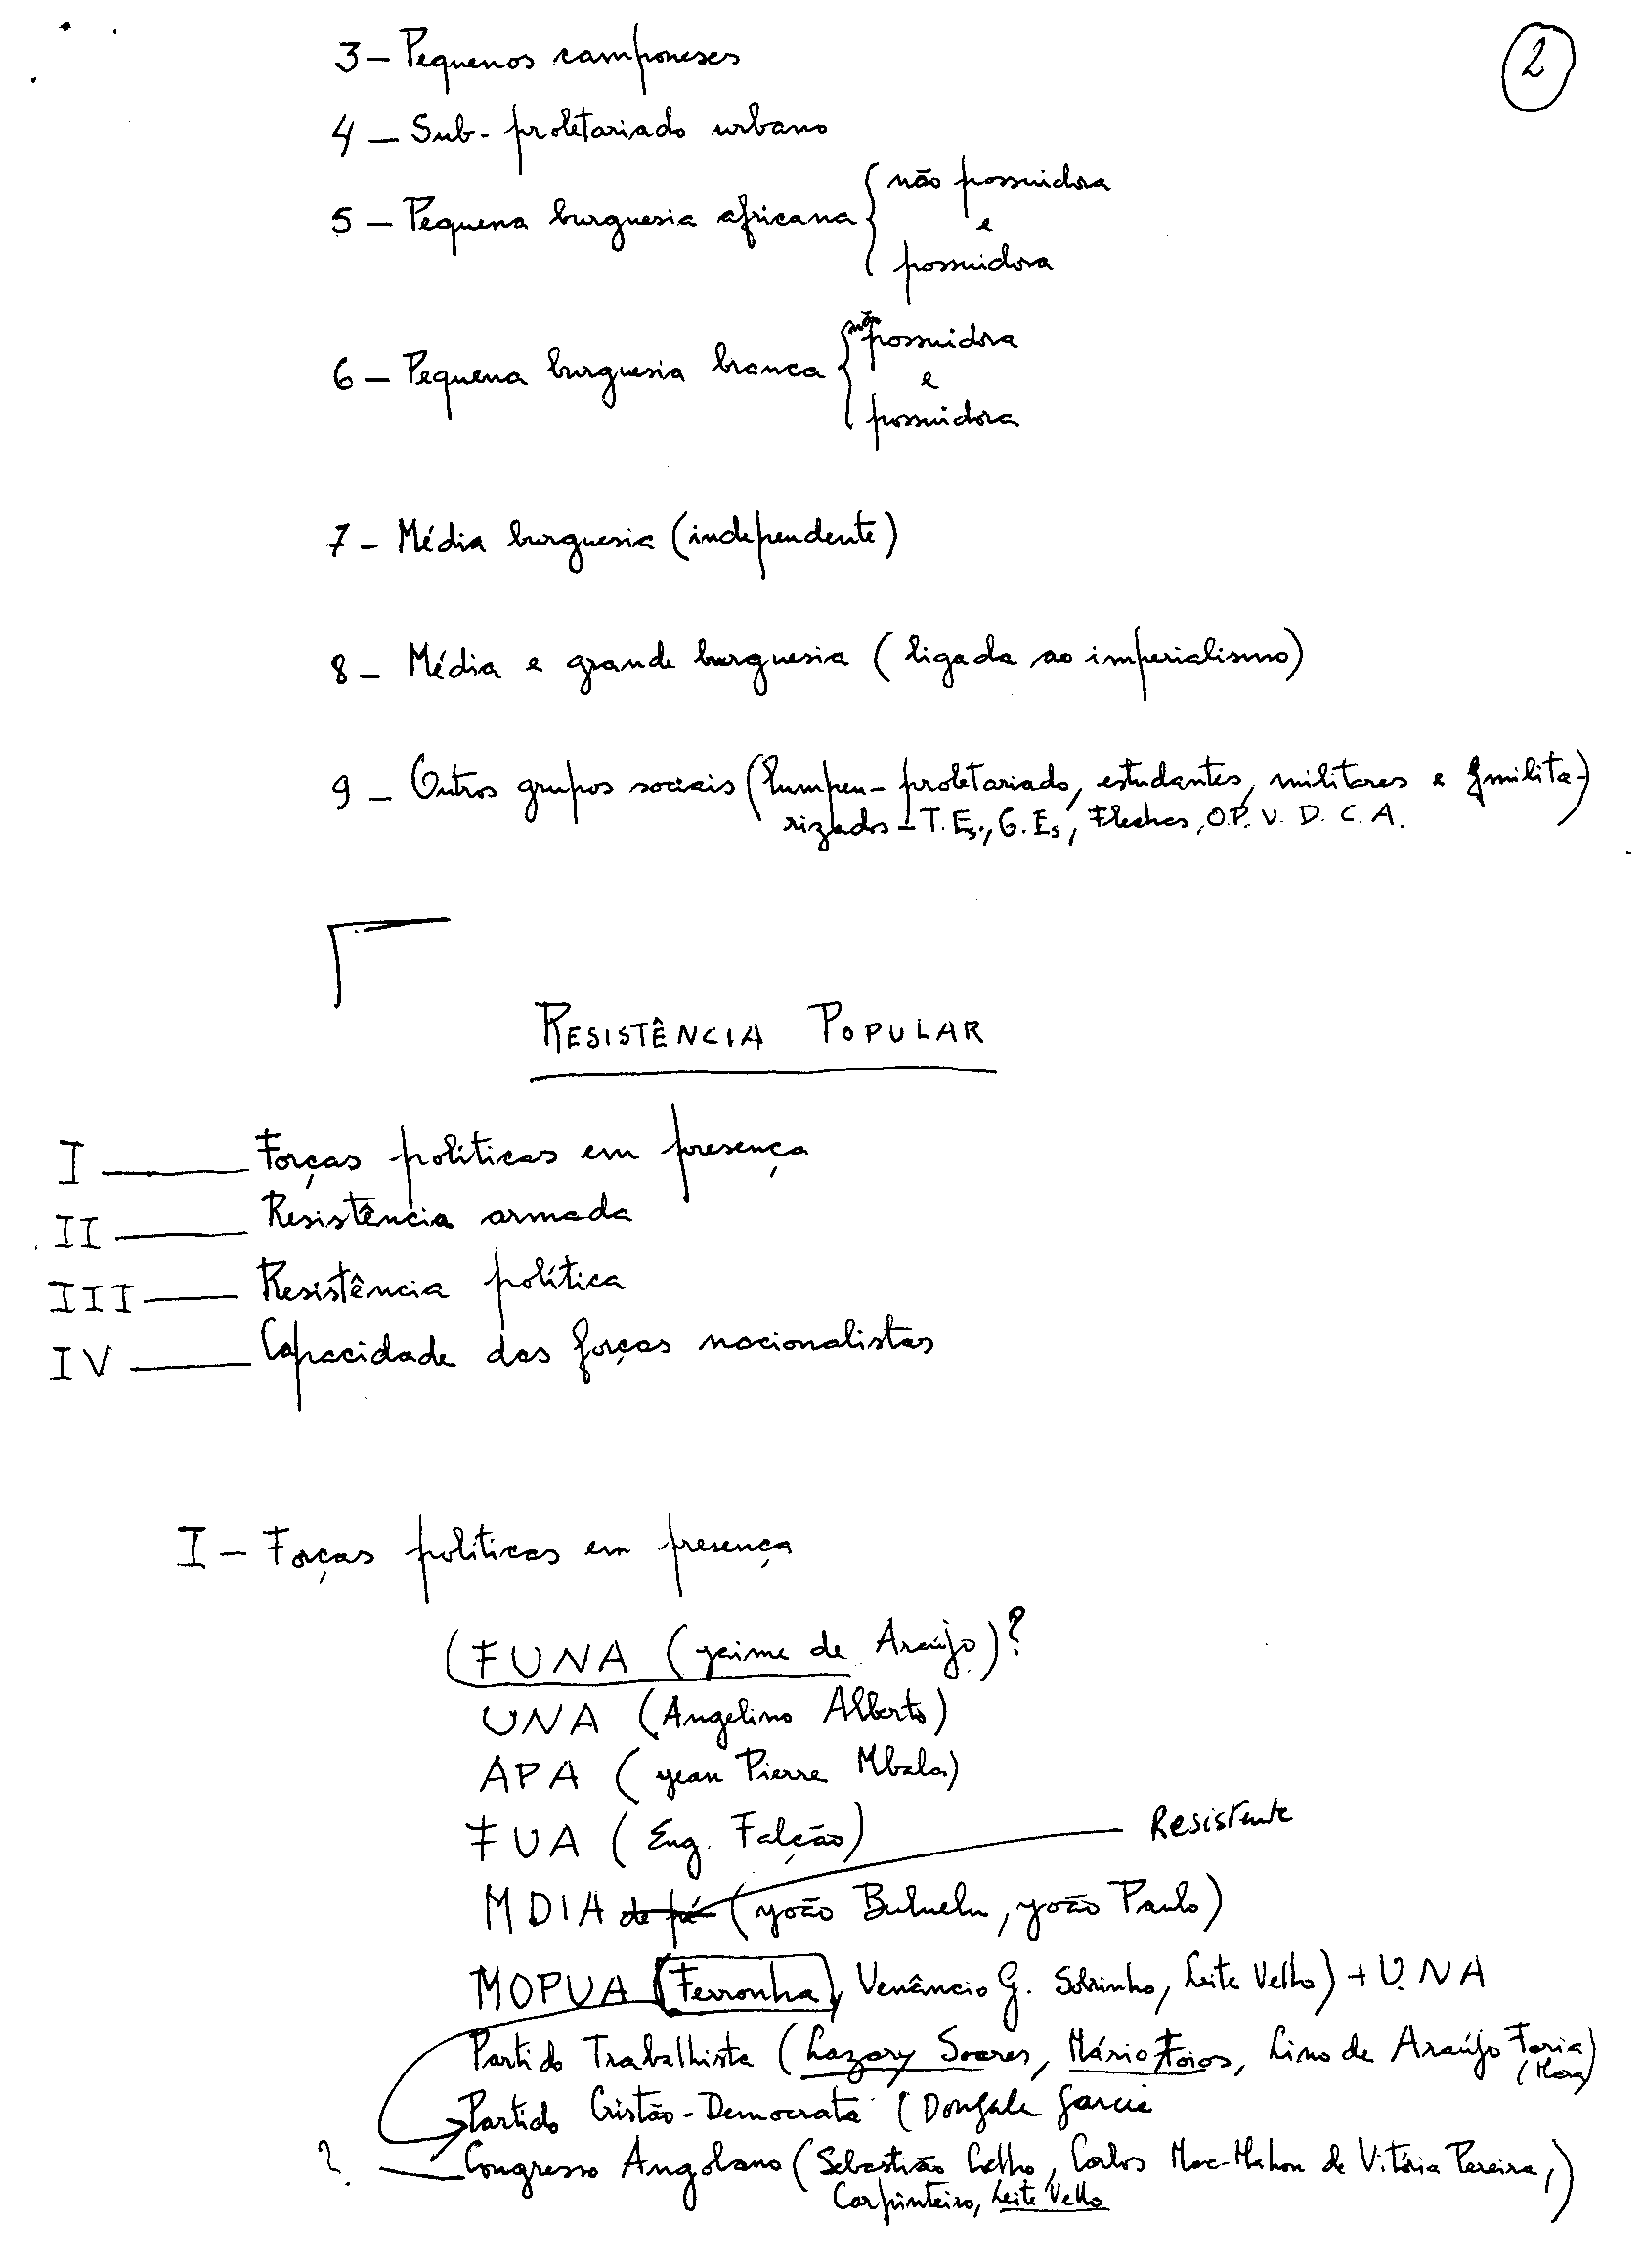 2
3 - Pequenos camponeses
4 - Sub-proletariado urbano
5 - Pequena burguesia africana { não possuidora
e
possuidora
6 - Pequena burguesia branca { não possuidora
e
possuidora
7 - Média burguesia (independente)
8 - Média e grande burguesia (ligada ao imperialismo)
9 - Outros grupos sociais (lumpen-proletariado, estudantes, militares e militarizados - T.Es., G.Es, Flechas, O.P.V.D.C.A.)
RESISTÊNCIA POPULAR
I — Forças políticas em presença
II — Resistência armada
III — Resistência política
IV — Capacidade das forças nacionalistas
I - Forças políticas em presença
(FUNA (Jaime de Araújo)?
UNA (Angelino Alberto)
APA (Jean Pierre Mbala)
FUA (Eng. Falcão)
Resistente
MDIA (João Paulo)
MOPUA (Ferronha), Venâncio G. Sobrinho, Leite Velho) + U.NA
Partido Trabalhista (Lazary Soares, Mário Foios, Lino de Araújo Faria)
Partido Cristão-Democrata (Garcia
? — Congresso Angolano (Sebastião Coelho, Carlos Mac-Mahon de Vitória Pereira,)
Carpinteiro, Leite Velho